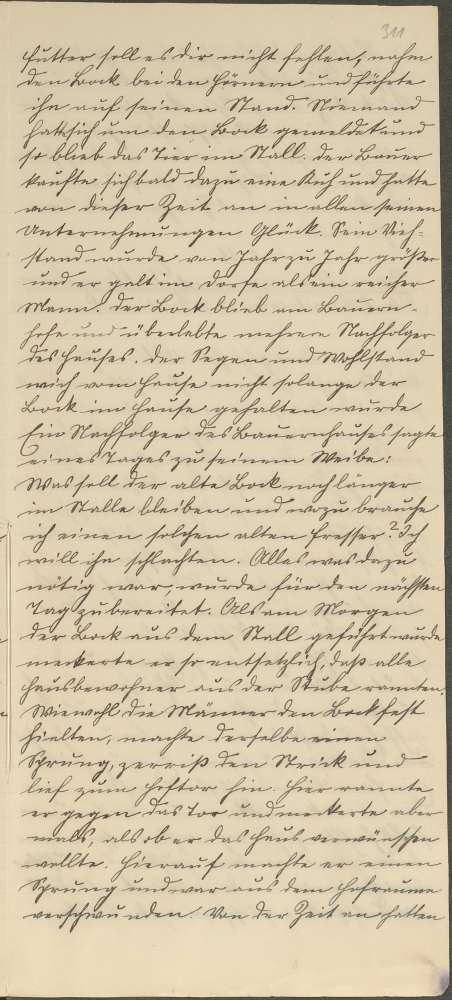 311
Futter soll es dir nicht fehlen, nahm
den Bock bei den Hörnern und führte
ihn auf seinen Stand. Niemand
hatte sich um den Bock gemeldet und
so blieb das Tier im Stall. Der Bauer
kaufte sich bald dazu eine Kuh und hatte
von dieser Zeit an in allen seinen
Unternehmungen Glück. Sein Vieh-
stand wurde von Jahr zu Jahr größer
und er galt im Dorfe als ein reicher
Mann. Der Bock blieb am Bauern-
hofe und überlebte mehrere Nachfolger
des Hauses. Der Segen und Wohlstand
wich vom Hause nicht solange der
Bock im Hause gehalten wurde
Ein Nachfolger des Bauernhauses sagte
eines Tages zu seinem Weibe:
Was soll der alte Bock noch länger
im Stalle bleiben und wozu brauche
ich einen solchen alten Fresser? Ich
will ihn schlachten. Alles was dazu
nötig war, wurde für den nächsten
Tag zubereitet. Als am Morgen
der Bock aus dem Stall geführt wurde
meckerte er so entsetzlich, daß alle
Hausbewohner aus der Stube rannten.
Wiewohl die Männer den Bock fest
hielten, machte derselbe einen
Sprung, zerriß den Strick und
lief zum Hoftor hin. Hier rannte
er gegen das Tor und meckerte aber
mals, als ob er das Haus verwünschen
wollte. Hierauf machte er einen
Sprung und war aus dem Hofraume
verschwunden. Von der Zeit an hatten